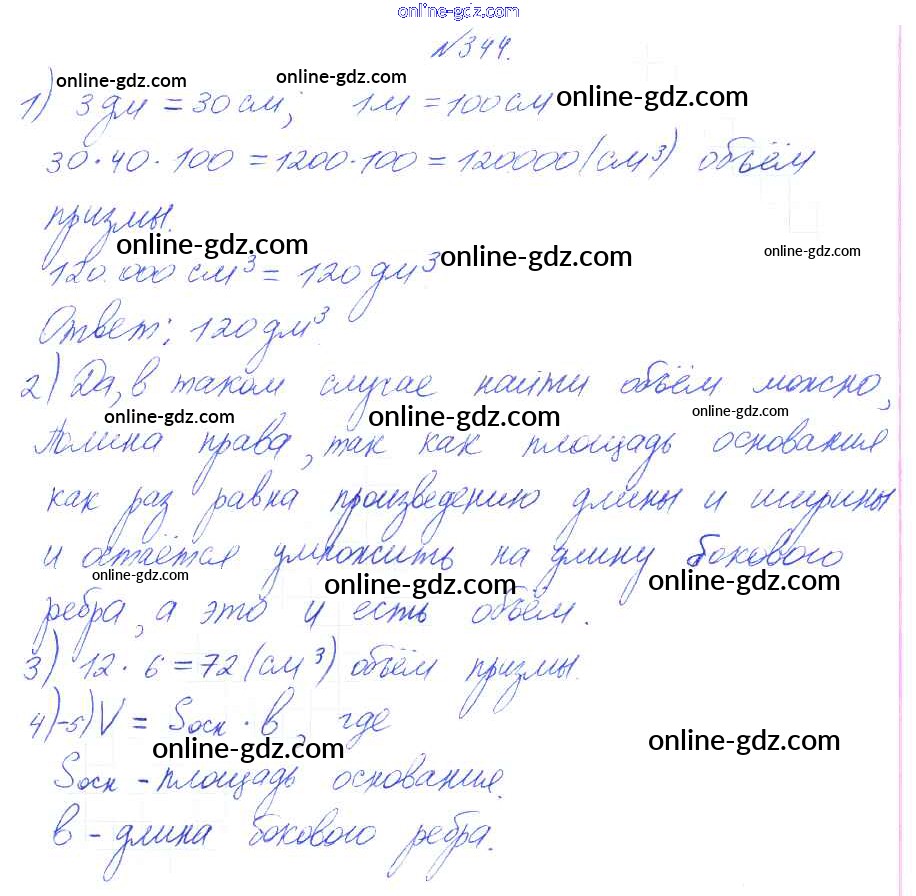 online-gdz.com
№344.
online-gdz.com online-gdz.com
1) 3 дм = 30 см; 1м = 100 см online-gdz.com
30·40·100 = 1200·100 = 120000 (см³) объём
призмы.
online-gdz.com online-gdz.com online-gdz.com
120.000 см³ = 120 дм³
Ответ: 120 дм³.
2) Да, в таком случае найти объём можно,
online-gdz.com online-gdz.com online-gdz.com
Полина права, так как площадь основания
как раз равна произведению длины и ширины
и остаётся умножить на длину бокового
online-gdz.com online-gdz.com online-gdz.com
ребра, а это и есть объём.
3) 12·6 = 72 (см³) объём призмы.
4)-5) V = Sосн · в, где
online-gdz.com online-gdz.com
Sосн - площадь основания.
в - длина бокового ребра.